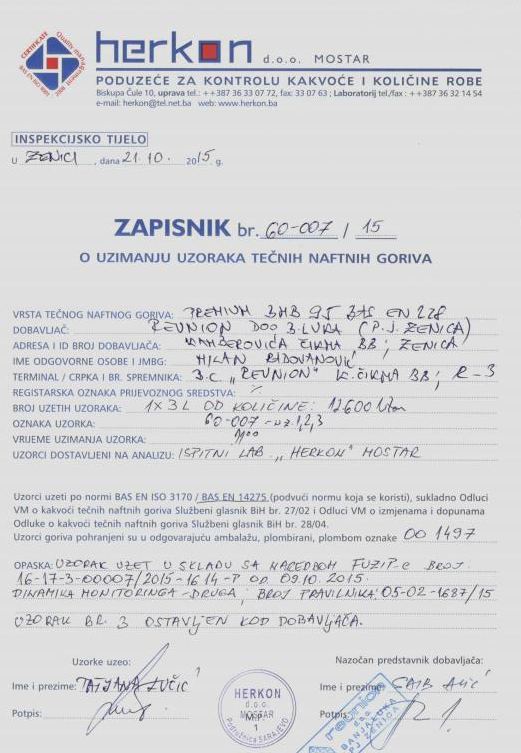 CERTIFICATE Quality management
BAS EN ISO
herkon d.o.o. MOSTAR
PODUZEĆE ZA KONTROLU KAKVOĆE I KOLIČINE ROBE
Biskupa Čule 10, uprava tel.: ++387 36 33 07 72, fax: 33 07 63 ; Laboratorij tel./fax : ++387 36 32 14 54
e-mail: herkon@tel.net.ba web: www.herkon.ba
INSPEKCIJSKO TIJELO
U ZENICI , dana 21.10. 2015 g.
ZAPISNIK br. 60-007 / 15
O UZIMANJU UZORAKA TEČNIH NAFTNIH GORIVA
VRSTA TEČNOG NAFTNOG GORIVA: PREMIUM BMB 95 BAS EN 228
DOBAVLJAČ: REUNION DOO B.LUKA (P.J. ZENICA)
ADRESA I ID BROJ DOBAVLJAČA: KAMBEROVIĆA ČIKMA BB; ZENICA
IME ODGOVORNE OSOBE I JMBG: MILAN RADOVANOVIĆ
TERMINAL / CRPKA I BR. SPREMNIKA: B.C. „REUNION" K. ČIKMA BB; R-3
REGISTARSKA OZNAKA PRIJEVOZNOG SREDSTVA: %
BROJ UZETIH UZORAKA: 1x3L OD KOLIČINE: 12600
OZNAKA UZORKA: 60-007-uz.1,2,3
VRIJEME UZIMANJA UZORKA: 11:00
UZORCI DOSTAVLJENI NA ANALIZU: ISPITNI LAB. „HERKON" MOSTAR
Uzorci uzeti po normi BAS EN ISO 3170 / BAS EN 14275 (podvući normu koja se koristi), sukladno Odluci
VM o kakvoći tečnih naftnih goriva Službeni glasnik BiH br. 27/02 i Odluci VM o izmjenama i dopunama
Odluke o kakvoći tečnih naftnih goriva Službeni glasnik BiH br. 28/04.
Uzorci goriva pohranjeni su u odgovarajuću ambalažu, plombirani, plombom oznake 00 1497
OPASKA: UZORAK UZET U SKLADU SA NAREDBOM FUZIP-e BROJ
16-17-3-00007/2015-1614-P OD 09.10.2015.
DINAMIKA MONITORINGA-DRUGA; BROJ PRAVILNIKA: 05-02-1687/15
UZORAK BR. 3 OSTAVLJEN KOD DOBAVLJAČA.
Uzorke uzeo:
Nazočan predstavnik dobavljača:
Ime i prezime: TATJANA LUČIĆ
Ime i prezime:
Potpis:
Potpis:
HERKON
d.o.o
MOSTAR
M.P.
1
Podružnica SARAJEVO
reunion
d.o.o.
BANJALUKA
PJ ZENICA